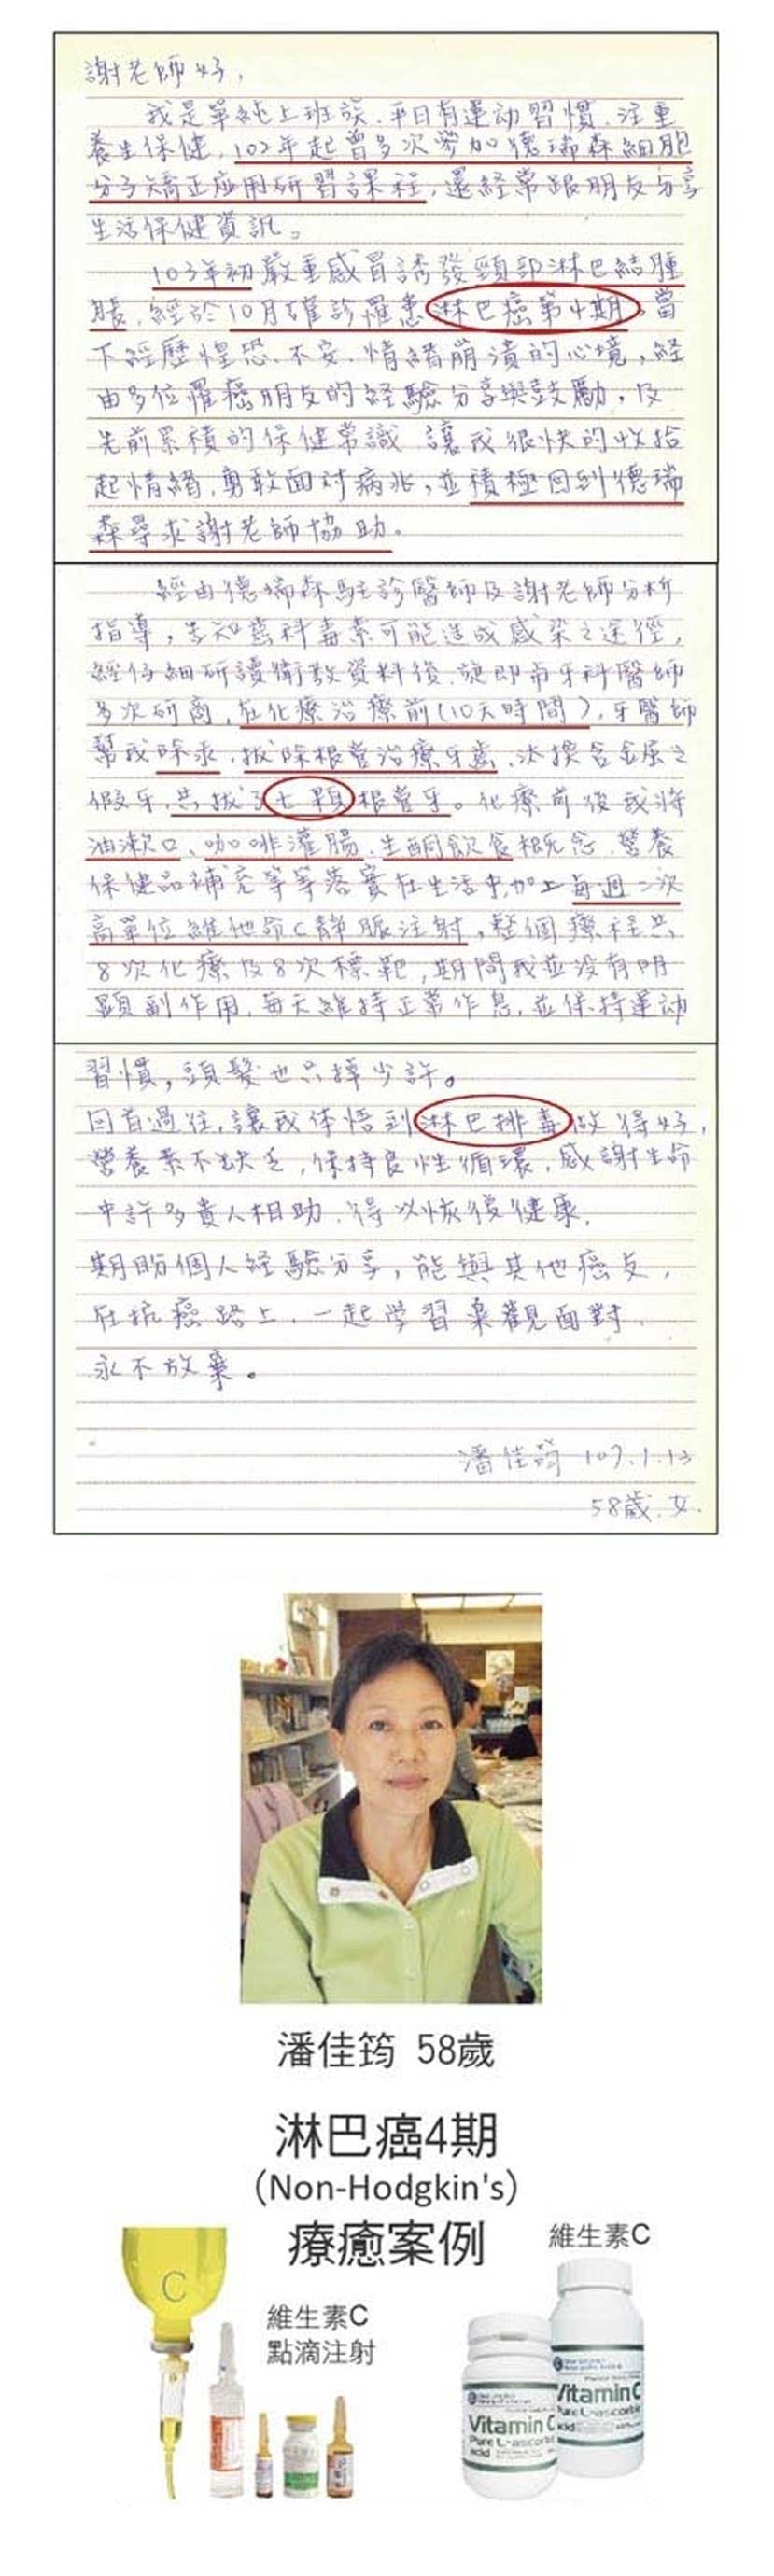 謝老師好,
我是單純上班族.平日有運动習慣.注重
養生保健.102年起曾多次參加德瑞森細胞
分子矯正应用研習課程,還經常跟朋友分享
生活保健資訊。
103年初嚴重感冒誘發頸部淋巴結腫
脹.經於10月確診罹患淋巴癌第4期,當
下經歷惶恐.不安.情緒崩潰的心境,經
由多位罹癌朋友的經驗分享與鼓勵,及
先前累積的保健常識 讓我很快的收拾
起情緒.勇敢面对病兆,並積極回到德瑞
森尋求謝老師協助。
經由德瑞森駐診醫師及謝老師分析
指導,告知齒科毒素可能造成感染之途徑,
經仔細研讀衛教資料後.旋即市牙科醫師
多次研商,在化療治療前(10天時間),牙醫師
幫我除汞.拔除根管治療牙齒.汰換含金屬之
假牙.共拔了七顆根管牙。化療前後我將
油漱口、咖啡灌腸.生酮飲食概念.營養
保健品補充等等落實在生活中,加上每週二次
高單位維他命C靜脈注射,整個療程共
8次化療及8次標靶,期間我並沒有明
顯副作用.每天維持正常作息,並保持運动
習慣,頭髮也只掉少許。
回首過往,讓我体悟到淋巴排毒做得好,
營養素不缺乏,保持良性循環,感謝生命
中許多貴人相助.得以恢復健康.
期盼個人經驗分享,能與其他癌友,
在抗癌路上.一起学習樂觀面對.
永不放棄。
潘佳筠 107.1.13
58歲.女.
潘佳筠 58歲
淋巴癌4期
(Non-Hodgkin's)
療癒案例
維生素C
C
維生素C
點滴注射
Vitamin C
Pure L-ascorbic
acid
Vitamin C
Pure L-ascorbic
acid